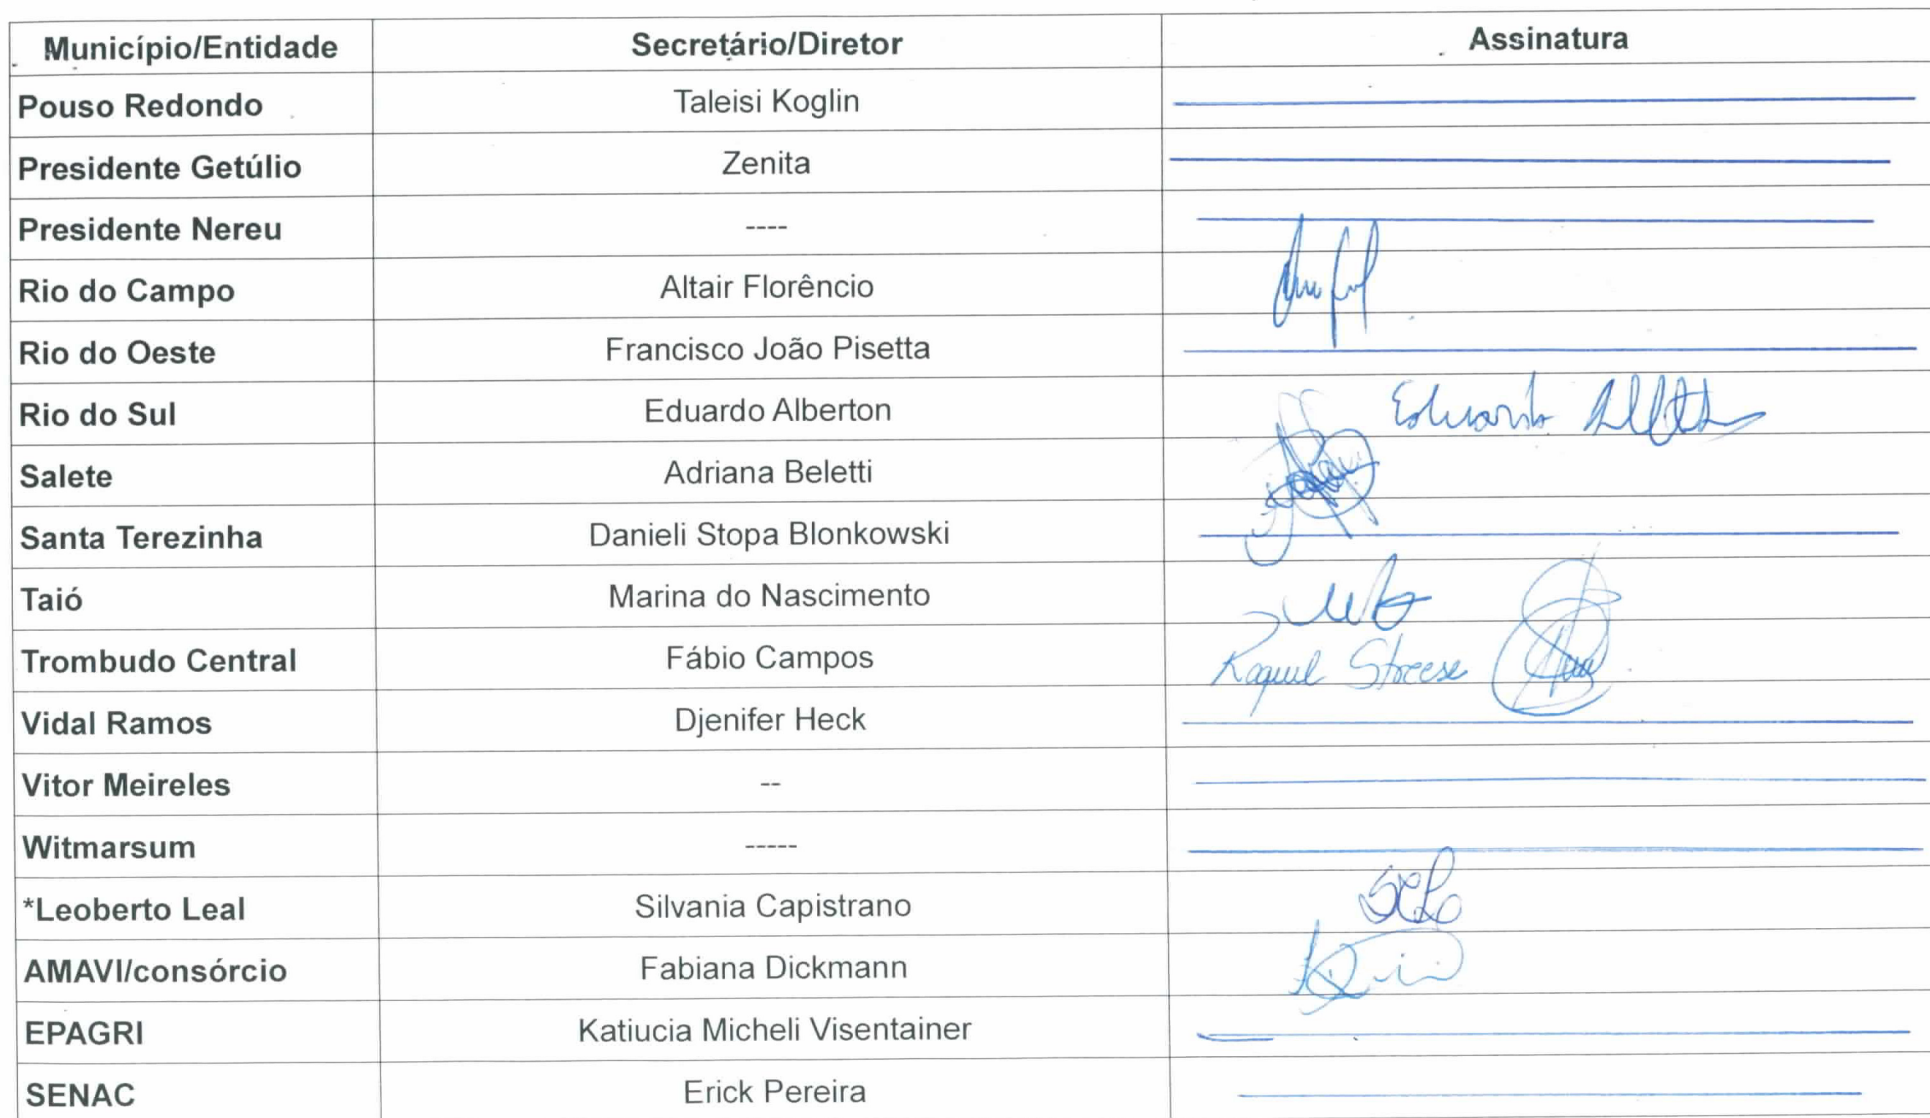 Município/Entidade Secretário/Diretor Assinatura
Pouso Redondo Taleisi Koglin
Presidente Getúlio Zenita
Presidente Nereu ----
Rio do Campo Altair Florêncio
Rio do Oeste Francisco João Pisetta
Rio do Sul Eduardo Alberton Eduardo
Salete Adriana Beletti
Santa Terezinha Danieli Stopa Blonkowski
Taió Marina do Nascimento
Trombudo Central Fábio Campos Raquel
Vidal Ramos Djenifer Heck
Vitor Meireles --
Witmarsum -----
*Leoberto Leal Silvania Capistrano
AMAVI/consórcio Fabiana Dickmann
EPAGRI Katiucia Micheli Visentainer
SENAC Erick Pereira